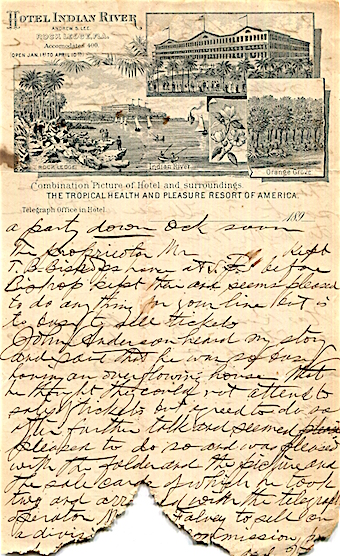 HOTEL INDIAN RIVER
ANDREW S. LEE.
ROCKLEDGE, FLA.
Accomodates 400.
(OPEN JAN. 1ST TO APRIL 10TH)
ROCK LEDGE.
Indian River
Orange Grove
Combination Picture of Hotel and surroundings.
THE TROPICAL HEALTH AND PLEASURE RESORT OF AMERICA.
Telegraph Office in Hotel.
189
a party down soon
The Proprietor Mr kept
before
kept and seems pleased
to do anything in your line but is
to busy to sell tickets
John Anderson heard my story
and said that he was so busy
having an overflowing house that
he thought they could not attend to
sale of tickets but agreed to do so
after further talk and seemed
pleased to do so and was pleased
with the folder and the picture and
the sale cards of which he took
two and with the telegraph
operator to sell on
a commission